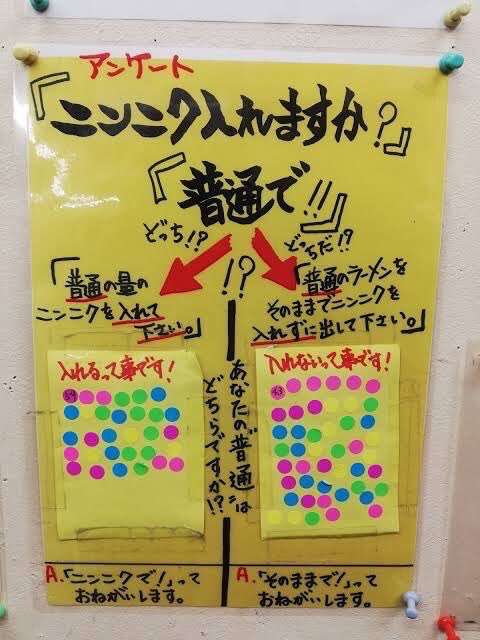 アンケート
『ニンニク入れますか？』
『普通で!!』
どっち!?
どっちだ!?
!?
「普通の量の
ニンニクを入れて
下さい。」
「普通のラーメンを
そのままでニンニクを
入れずに出して下さい。」
入れるって事です！
入れないって事です！
あなたの“普通”は
どちらですか!?
A.「ニンニクで！」って
おねがいします。
A.「そのままで！」って
おねがいします。